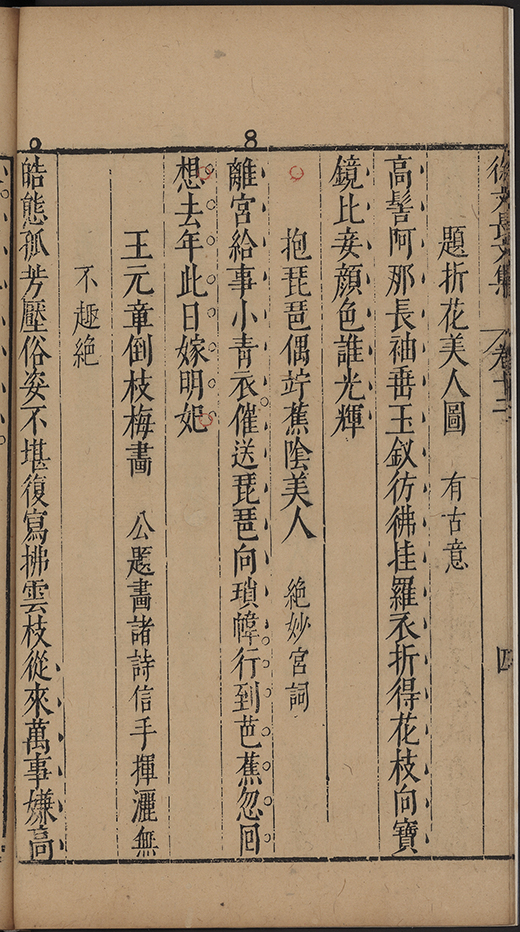 徐文長文集 卷十二 四
題折花美人圖 有古意
高髻阿那長袖垂玉釵彷彿挂羅衣折得花枝向寶
鏡比妾顔色誰光輝
抱琵琶偶竚蕉陰美人 絶妙宮詞
離宮給事小青衣催送琵琶向瑣幃行到芭蕉忽回
想去年此日嫁明妃
王元章倒枝梅畵 公題畵諸詩信手揮灑無
不趣絶
皓態孤芳壓俗姿不堪復寫拂雲枝從來萬事嫌高